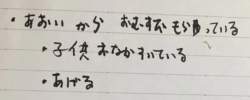 ・あおいから おむすび もらっている
・子供 おなかすいている
・あげる